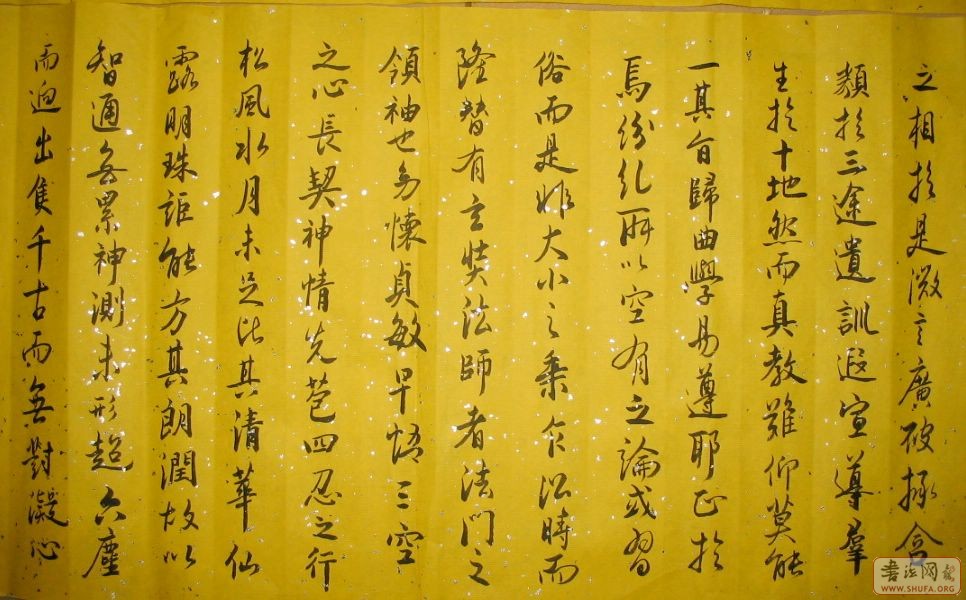 之相於是微言廣破拯含
類於三途遺訓遐宣導羣
生於十地然而真教難仰莫能
一其旨歸曲學易遵耶正於
焉紛糺所以空有之論或習
俗而是非大小之乘乍沿時而
隆替有玄奘法師者法門之
領袖也幼懷貞敏早悟三空
之心長契神情先苞四忍之行
松風水月未足比其清華仙
露明珠詎能方其朗潤故以
智通無累神測未形超六塵
而迥出隻千古而無對凝心
書法网
WWW.SHUFA.ORG